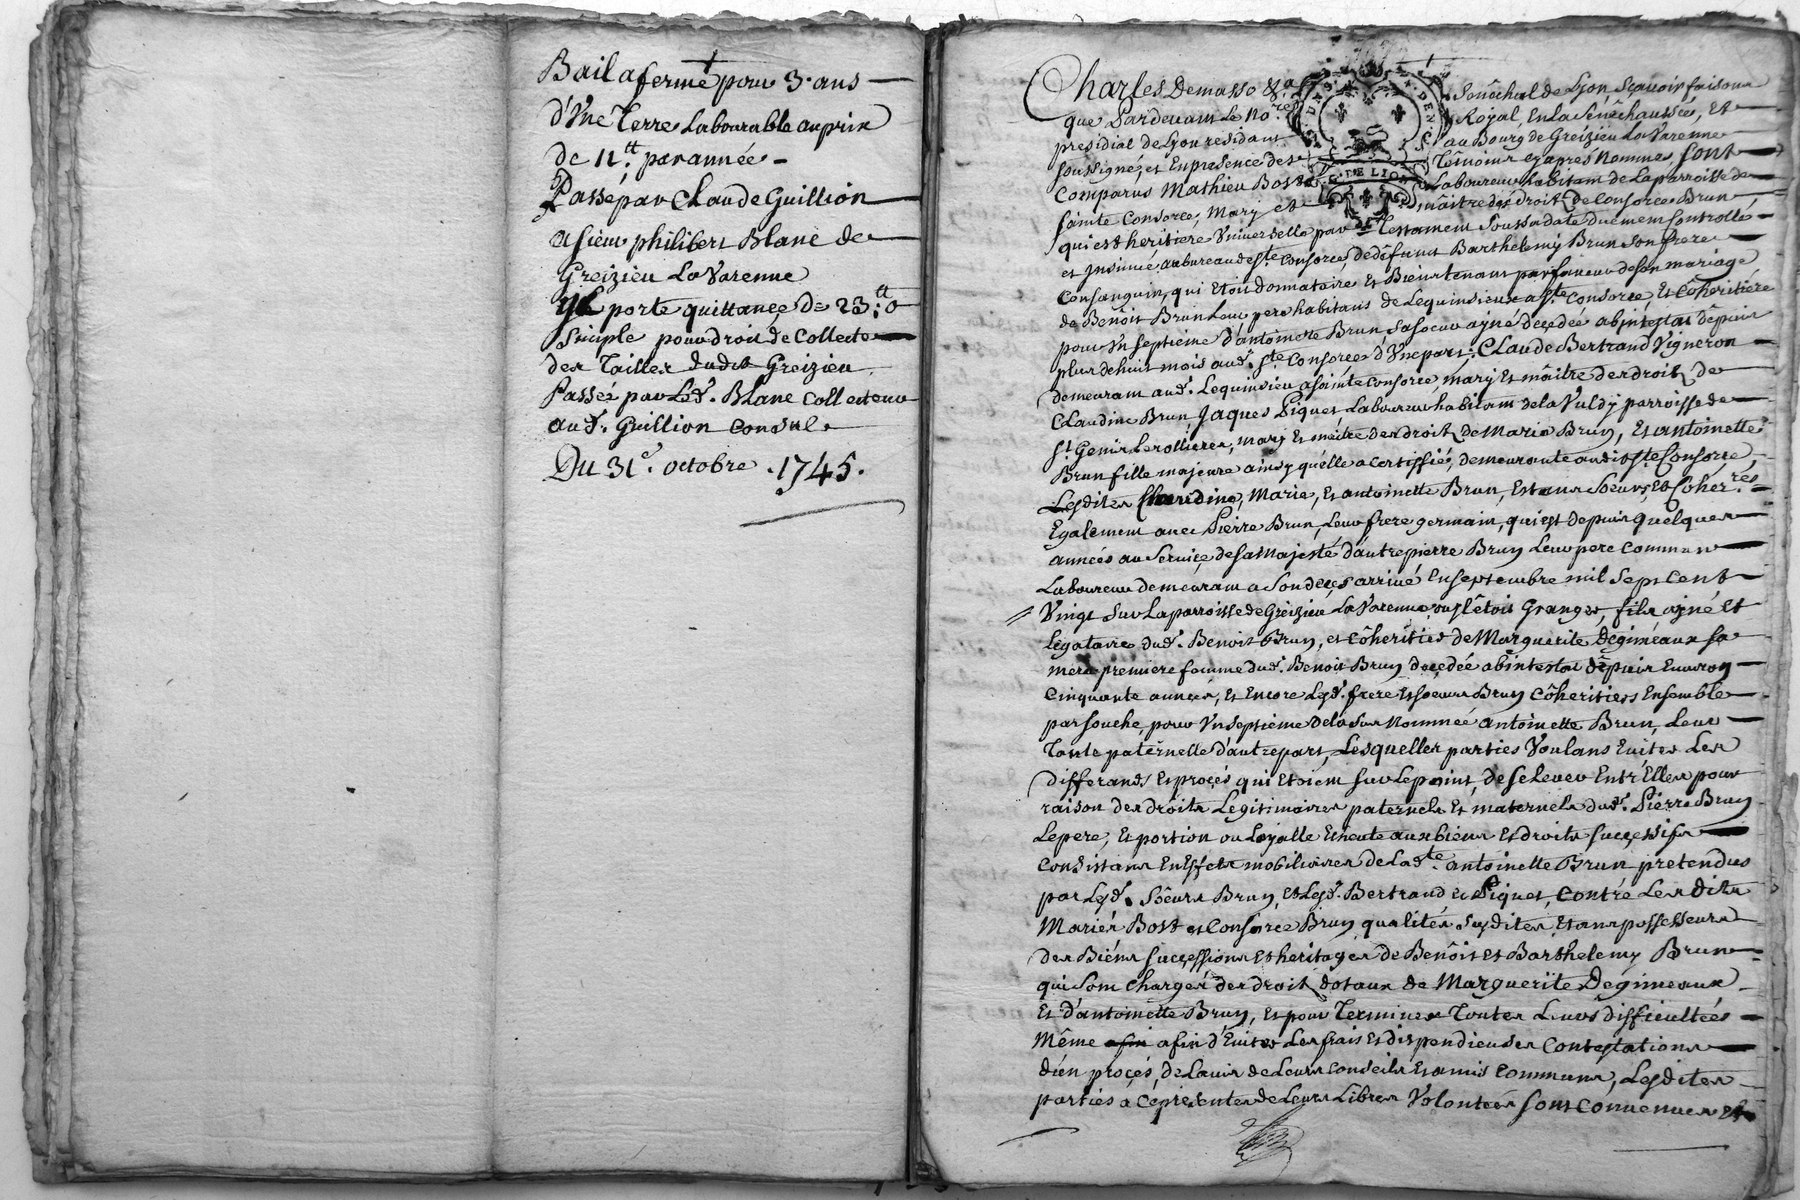 Bail a ferme pour 3. ans
d'Vne Terre Labourable au prix
de 12.tt par année
Passé par Claude Guillion
a sieur philibert Blanc de
Greizieu La Varenne
porte quittance de 23.tt
Simple pour droit de Collecte
des Tailles dudit Greizieu
Passée par Led. Blanc Collecteur
aud. Guillion Consul.
Du 31e. octobre .1745.
Charles Demasso &a Senêchal de Lyon Sçavoir faisons
que Pardevant Le No.re Royal, En La Senêchaussée, Et
presidial de Lyon residant au Bourg de Greizieu La Varenne
soussigné, et En presence des Têmoins cy aprés Nommés, sont
Comparus Mathieu Bost Laboureur habitant de La parroisse de
sainte Consorce, Mary et maître des droits de Consorce Brun
qui est heritiere Vniverselle par Testament sous sa date duëment Controllé
et jnsinué au bureau de ste. Consorce, de deffunt Barthelemy Brun son frere
Consanguin, qui Etoit donnataire et Bien tenant par faveur de son mariage
de Benoit Brun Leur pere habitans de Lequinsieux a ste. Consorce, Et Cöheritiére
pour Vn septieme d'antoinette Brun sa soeur ayné decedée abintestat dêpuis
plus de huit mois aud. ste. Consorce d'Vne part; Claude Bertrand Vigneron
demeurant aud. Lequinsieu a sainte Consorce, mary Et maître des droits de
Claudine Brun, Jaques Piquet Laboureur habitant de la Valdy parroisse de
st. Genis Lerollieres, mary Et maitre des droits de Marie Brun, Et antoinette
Brun fille majeure ainsy qu'elle a certiffié, demeurante audit ste Consorce,
Lesdites Claudine, Marie, Et antoinette Brun, Estans Soeurs, Et Cohér.res
Egalement avec Pierre Brun, Leur frere germain, qui est depuis quelques
années au Service de sa Majesté d'autre pierre Brun Leur pere Commun
Laboureur demeurant a Son decés arrivé En septembre mil Sept Cent
Vingt Sur La parroisse de Greizieu La Varenne ou jl êtoit Granger, fils ayné Et
Légataire dud. Benoit Brun, et Cöheritier de Marguerite Degimeaux sa
mere premiere femme dud. Benoit Brun decedée abintestat dêpuis Environ
Cinquante années, Et Encore Lesd. frere Et soeurs Brun Cöheritiers Ensemble
par souche, pour Vn septieme de la sus Nommée antoinette Brun, Leur
Tante paternelle d'autre part, Lesquelles parties Voulans Eviter Les
differands Et procés qui Etoient sur Le point de se Lever Entr'Elles pour
raison des droits Legitimaires paternels Et maternels dud. Pierre Brun
Le pere, Et portion ou Loyalle Echeute aux biens Et droits successifs
Consistans En Effets mobiliaires de Lad.te antoinette Brun pretendus
par Lesd. Soeurs Brun, Et Lesd. Bertrand Et Piquet, Contre Les dits
Mariés Bost et Consorce Brun qualités susdites, Etans possesseurs
des Biéns successions Et heritages de Benoit Et Barthelemy Brun
qui sont Chargés des droits dotaux de Marguerite Degimeaux
Et d'antoinette Brun, Et pour Terminer Toutes Leurs difficultées
Même afin d'Eviter Les frais Et dispendieuses Contestations
d'un procés, de L'avis de Leurs conseils Et amis Communs, Lesdites
parties a Ce presentes de Leurs Libres Volontées sont Convenues Et